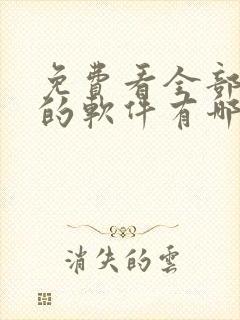 免費看全部
的軟件有哪
消失的雲